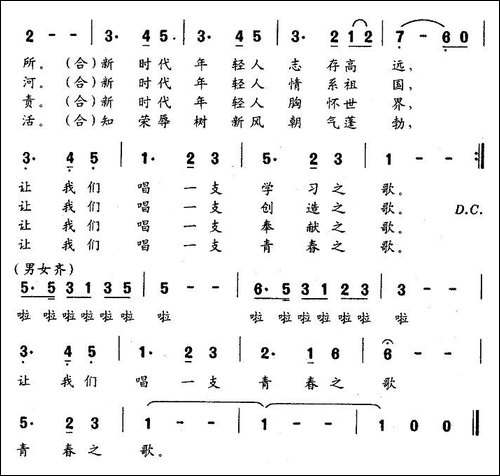 2 - - | 3· 4 5 | 3· 4 5 | 3· 2 1 2 | 7 - 6 0 |
所。(合)新 时代 年 轻人 志 存高 远,
河。(合)新 时代 年 轻人 情 系祖 国,
责。(合)新 时代 年 轻人 胸 怀世 界,
活。(合)知 荣辱 树 新风 朝 气蓬 勃,
3· 4 5 | 1· 2 3 | 5· 2 3 | 1 - - :||
让 我们 唱 一支 学 习之 歌。
让 我们 唱 一支 创 造之 歌。 D.C.
让 我们 唱 一支 奉 献之 歌。
让 我们 唱 一支 青 春之 歌。
(男女齐)
5· 5 3 1 3 5 | 5 - - | 6· 5 3 1 2 3 | 3 - - |
啦 啦啦啦啦啦 啦 啦 啦啦啦啦啦 啦
3· 4 5 | 1· 2 3 | 2· 1 6 | 6 - - |
让 我们 唱 一支 青 春之 歌
5· 2 3 | 1 - - | 1 - - | 1 0 0 ||
青 春之 歌。